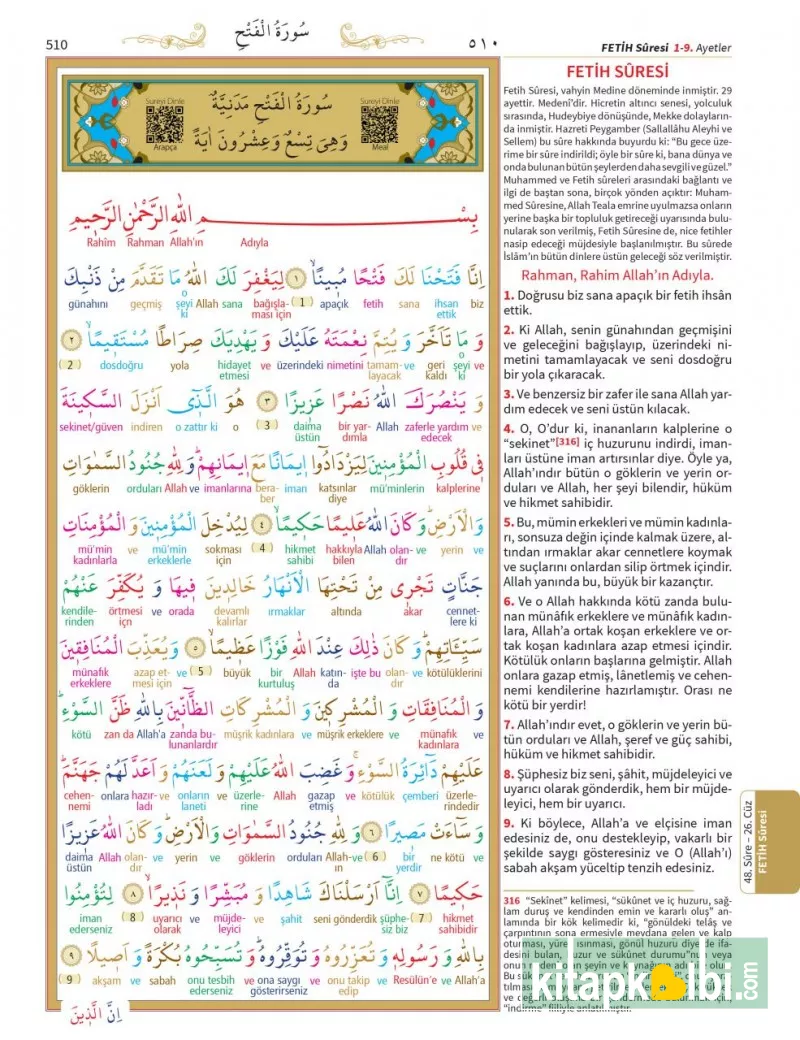 510
سُورَةُ الْفَتْحِ
٥١٠
FETİH Sûresi 1-9. Ayetler
Sureyi Dinle
Arapça
سُورَةُ الْفَتْحِ مَدَنِيَّةٌ
وَهِىَ تِسْعٌ وَعِشْرُونَ اٰيَةً
Sureyi Dinle
Meal
بِسْمِ اللّٰهِ الرَّحْمٰنِ الرَّحِيمِ
Rahîm Rahman Allah’ın Adıyla
اِنَّا فَتَحْنَا لَكَ فَتْحًا مُبِينًاۙ ﴿١﴾ لِيَغْفِرَ لَكَ اللّٰهُ مَا تَقَدَّمَ مِنْ ذَنْبِكَ
günahını geçmiş o şeyi ki Allah sana bağışla- ması için (1) apaçık fetih sana ihsan ettik biz
وَ مَا تَاَخَّرَ وَ يُتِمَّ نِعْمَتَهُ عَلَيْكَ وَ يَهْدِيَكَ صِرَاطًا مُسْتَقِيمًاۙ ﴿٢﴾
(2) dosdoğru yola hidayet etmesi ve üzerindeki nimetini tamam- layacak ve geri kaldı o şeyi ki ve
وَ يَنْصُرَكَ اللّٰهُ نَصْرًا عَزِيزًا ﴿٣﴾ هُوَ الَّذِٓى اَنْزَلَ السَّكِينَةَ
sekinet/güven indiren o zattır ki o (3) daima üstün bir yar- dımla Allah zaferle yardım edecek ve
فِى قُلُوبِ الْمُؤْمِنِينَ لِيَزْدَادُٓوا اِيمَانًا مَعَ اِيمَانِهِمْۜ وَ لِلّٰهِ جُنُودُ السَّمٰوَاتِ
göklerin orduları Allah ve imanlarına bera- ber iman katsınlar diye mü’minlerin kalplerine
وَالْاَرْضِۜ وَ كَانَ اللّٰهُ عَلِيمًا حَكِيمًاۙ ﴿٤﴾ لِيُدْخِلَ الْمُؤْمِنِينَ وَ الْمُؤْمِنَاتِ
mü’min kadınlarla ve mü’min erkeklerle sokması için (4) hikmet sahibi hakkıyla bilen Allah olan- dır ve yerin ve
جَنَّاتٍ تَجْرِى مِنْ تَحْتِهَا الْاَنْهَارُ خَالِدِينَ فِيهَا وَ يُكَفِّرَ عَنْهُمْ
kendile- rinden örtmesi için ve orada devamlı kalırlar ırmaklar altında akar cennet- lere ki
سَيِّـَٔاتِهِمْۜ وَ كَانَ ذٰلِكَ عِنْدَ اللّٰهِ فَوْزًا عَظِيمًاۙ ﴿٥﴾ وَ يُعَذِّبَ الْمُنَافِقِينَ
münafık erkeklere azap et- mesi için ve (5) büyük bir kurtuluş Allah katın- da işte bu olan- dır ve kötülüklerini
وَ الْمُنَافِقَاتِ وَ الْمُشْرِكِينَ وَ الْمُشْرِكَاتِ الظَّٓانِّينَ بِاللّٰهِ ظَنَّ السَّوْءِۜ
kötü zan da Allah’a zanda bu- lunanlardır müşrik kadınlara ve müşrik erkeklere ve münafık kadınlara ve
عَلَيْهِمْ دَٓائِرَةُ السَّوْءِۚ وَ غَضِبَ اللّٰهُ عَلَيْهِمْ وَ لَعَنَهُمْ وَ اَعَدَّ لَهُمْ جَهَنَّمَۜ
cehen- nemi onlara hazır- ladı ve onların laneti ve üzerle- rine Allah gazap etmiş ve kötülük çemberi üzerle- rindedir
وَ سَٓاءَتْ مَصِيرًا ﴿٦﴾ وَ لِلّٰهِ جُنُودُ السَّمٰوَاتِ وَالْاَرْضِۜ وَ كَانَ اللّٰهُ عَزِيزًا
daima üstün Allah olan- dır ve yerin ve göklerin orduları Allah- ın ve (6) bir yerdir ne kötü ve
حَكِيمًا ﴿٧﴾ اِنَّٓا اَرْسَلْنَاكَ شَاهِدًا وَ مُبَشِّرًا وَ نَذِيرًاۙ ﴿٨﴾ لِتُؤْمِنُوا
iman ederseniz (8) uyarıcı olarak ve müjde- leyici ve şahit seni gönderdik şüphe- siz biz (7) hikmet sahibidir
بِاللّٰهِ وَ رَسُولِهِ وَ تُعَزِّرُوهُ وَ تُوَقِّرُوهُۜ وَ تُسَبِّحُوهُ بُكْرَةً وَ اَصِيلًا ﴿٩﴾
(9) akşam ve sabah onu tesbih ederseniz ve ona saygı gösterirseniz ve onu takip edip ve Resülün’e ve Allah’a
اِنَّ الَّذِينَ
FETİH SÛRESİ
Fetih Sûresi, vahyin Medine döneminde inmiştir. 29
ayettir. Medenî’dir. Hicretin altıncı senesi, yolculuk
sırasında, Hudeybiye dönüşünde, Mekke dolayların-
da inmiştir. Hazreti Peygamber (Sallallâhu Aleyhi ve
Sellem) bu sûre hakkında buyurdu ki: “Bu gece üze-
rime bir sûre indirildi; öyle bir sûre ki, bana dünya ve
onda bulunan bütün şeylerden daha sevgili ve güzel.”
Muhammed ve Fetih sûreleri arasındaki bağlantı ve
ilgi de baştan sona, birçok yönden açıktır: Muham-
med Sûresine, Allah Teala emrine uyulmazsa onların
yerine başka bir topluluk getireceği uyarısında bulu-
nularak son verilmiş, Fetih Sûresine de, nice fetihler
nasip edeceği müjdesiyle başlanılmıştır. Bu sûrede
İslâm’ın bütün dinlere üstün geleceği söz verilmiştir.
Rahman, Rahim Allah’ın Adıyla.
1. Doğrusu biz sana apaçık bir fetih ihsân
ettik.
2. Ki Allah, senin günahından geçmişini
ve geleceğini bağışlayıp, üzerindeki ni-
metini tamamlayacak ve seni dosdoğru
bir yola çıkaracak.
3. Ve benzersiz bir zafer ile sana Allah yar-
dım edecek ve seni üstün kılacak.
4. O, O’dur ki, inananların kalplerine o
“sekinet”[316] iç huzurunu indirdi, iman-
ları üstüne iman artırsınlar diye. Öyle ya,
Allah’ındır bütün o göklerin ve yerin or-
duları ve Allah, her şeyi bilendir, hüküm
ve hikmet sahibidir.
5. Bu, mümin erkekleri ve mümin kadınla-
rı, sonsuza değin içinde kalmak üzere, al-
tından ırmaklar akar cennetlere koymak
ve suçlarını onlardan silip örtmek içindir.
Allah yanında bu, büyük bir kazançtır.
6. Ve o Allah hakkında kötü zanda bulu-
nan münâfık erkeklere ve münâfık kadın-
lara, Allah’a ortak koşan erkeklere ve or-
tak koşan kadınlara azap etmesi içindir.
Kötülük onların başlarına gelmiştir. Allah
onlara gazap etmiş, lânetlemiş ve cehen-
nemi kendilerine hazırlamıştır. Orası ne
kötü bir yerdir!
7. Allah’ındır evet, o göklerin ve yerin bü-
tün orduları ve Allah, şeref ve güç sahibi,
hüküm ve hikmet sahibidir.
8. Şüphesiz biz seni, şâhit, müjdeleyici ve
uyarıcı olarak gönderdik, hem bir müjde-
leyici, hem bir uyarıcı.
9. Ki böylece, Allah’a ve elçisine iman
edesiniz de, onu destekleyip, vakarlı bir
şekilde saygı gösteresiniz ve O (Allah’ı)
sabah akşam yüceltip tenzih edesiniz.
48. Sûre – 26. Cüz
FETİH Sûresi
316 “Sekînet” kelimesi, “sükûnet ve iç huzuru, sağ-
lam duruş ve kendinden emin ve kararlı oluş” an-
lamında bir kök kelimedir ki, “gönüldeki telâş ve
çarpıntının sona ermesiyle meydana gelen ve kalp
“indirme” fiiliyle anlatılmıştır.
kitapkalbi.com